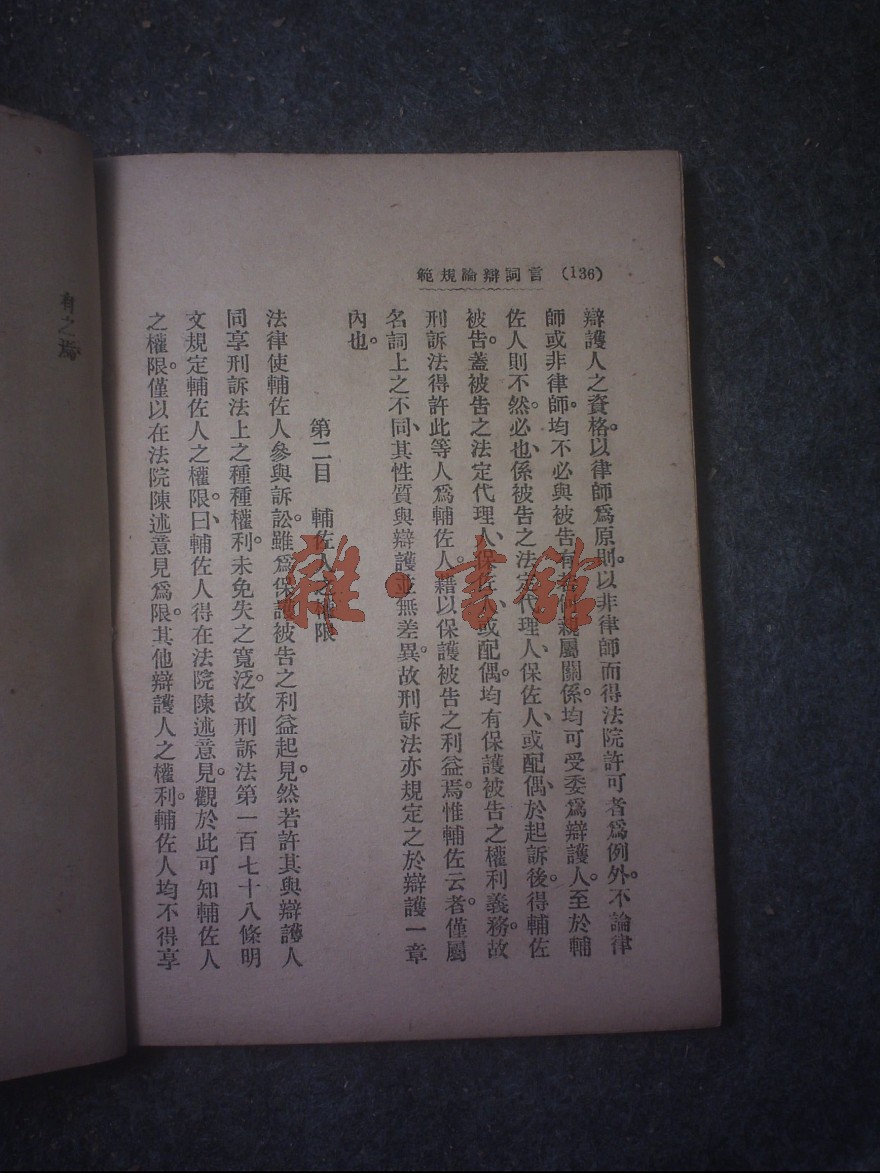 (136) 言詞辯論規範
辯護人之資格。以律師爲原則。以非律師而得法院許可者爲例外。不論律
師或非律師。均不必與被告有若何親屬關係。均可受委爲辯護人。至於輔
佐人則不然。必也、係被告之法定代理人、保佐人、或配偶、於起訴後。得輔佐
被告。蓋被告之法定代理人、保佐人、或配偶。均有保護被告之權利義務。故
刑訴法得許此等人爲輔佐人。藉以保護被告之利益焉。惟輔佐云者。僅屬
名詞上之不同、其性質與辯護並無差異。故刑訴法亦規定之於辯護一章
內也。
第二目 輔佐人之權限
法律使輔佐人參與訴訟。雖爲保護被告之利益起見。然若許其與辯護人
同享刑訴法上之種種權利。未免失之寬泛。故刑訴法第一百七十八條明
文規定輔佐人之權限。曰、輔佐人得在法院陳述意見。觀於此可知輔佐人
之權限。僅以在法院陳述意見爲限。其他辯護人之權利。輔佐人均不得享
有之焉
雜·書館